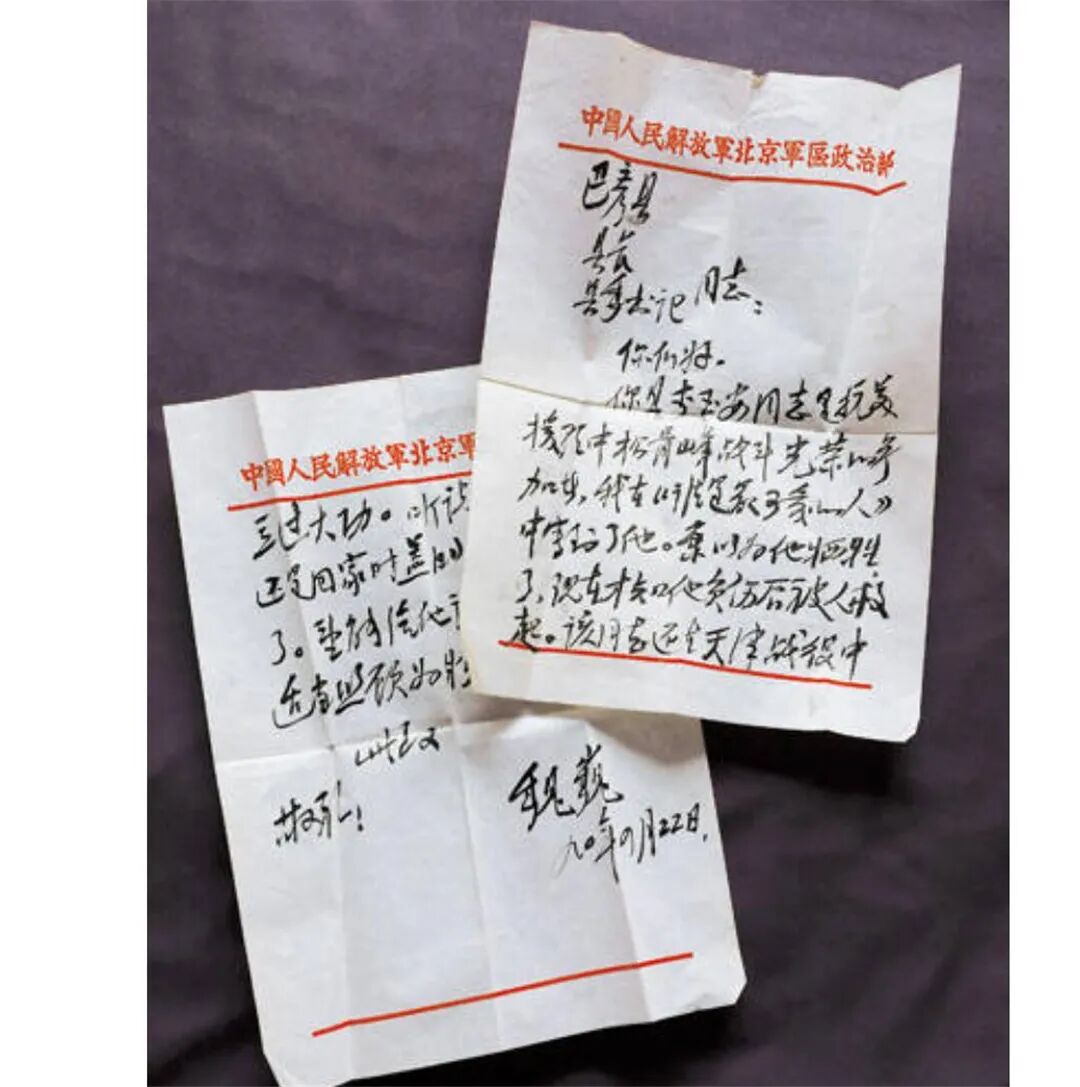 中國人民解放軍北京軍區政治部
巴彦县
县长
县委书记 同志：
你们好。
你县李玉安同志是抗美
援朝中松骨峰战斗光荣的参
加者，我在《谁是最可爱的人》
中写到了他。原以为他牺牲
了，现在才知他负伤后被人救
起。该同志还在天津战役中
中國人民解放軍北京軍
立过大功。听说
还是回家时盖的
了。望能给他
适当照顾为
此致
敬礼！
魏巍
九〇年四月22日.